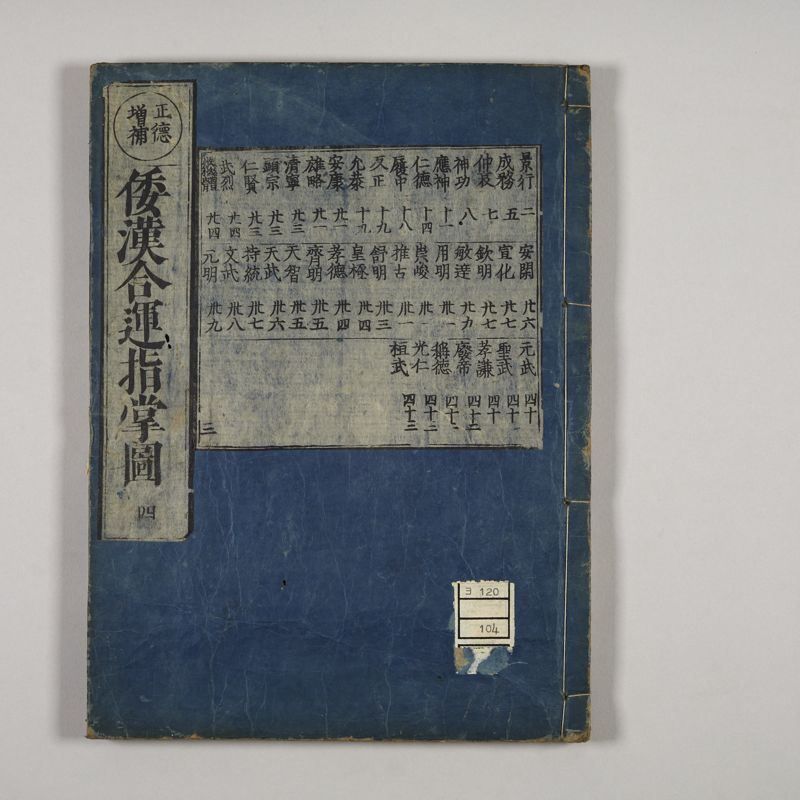 正德
增補
倭漢合運指掌圖
四
景行 二 安閑 廿六 元武 四十
成務 五 宣化 廿七 聖武 四十一
仲哀 七 欽明 廿七 孝謙 四十
神功 八 敏達 廿九 廢帝 四十二
應神 十一 用明 卅一 稱德 四十二
仁德 十四 崇峻 卅一 光仁 四十二
履中 十八 推古 卅一 桓武 四十三
反正 十九 舒明 卅三
允恭 十九 皇極 卅四
安康 廿一 孝德 卅四
雄略 廿一 齊明 卅五
清寧 廿三 天智 卅五
顕宗 廿三 天武 卅六
仁賢 廿三 持統 卅七
武烈 廿四 文武 卅八
繼體 廿四 元明 卅九
三
ヨ 120
104